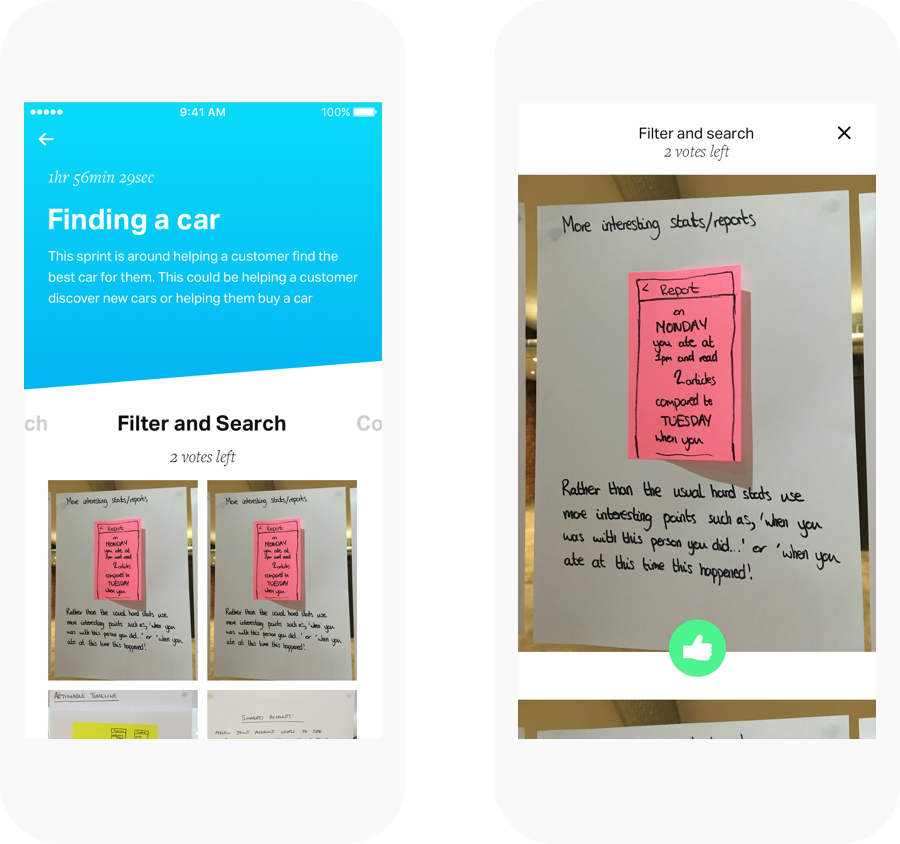 9:41 AM
100%
1hr 56min 29sec
Finding a car
This sprint is around helping a customer find the
best car for them. This could be helping a customer
discover new cars or helping them buy a car
ch
Filter and Search
Co
2 votes left
More interesting stats/reports
< Report
on
MONDAY
you ate at
1pm and read
2 articles
compared to
TUESDAY
when you
Rather than the usual hard stats use
more interesting points such as, 'when you
was with this person you did...' or 'when you
ate at this time this happened!'
More interesting stats/reports
< Report
on
MONDAY
you ate at
1pm and read
2 articles
compared to
TUESDAY
when you
Rather than the usual hard stats use
more interesting points such as, 'when you
was with this person you did...' or 'when you
ate at this time this happened!'
ACTIONABLE TIMELINE
SHARED ACCOUNT:
JOINT ACCOUNT USERS TO SEE
Filter and search
2 votes left
More interesting stats/reports
< Report
on
MONDAY
you ate at
1pm and read
2 articles
compared to
TUESDAY
when you
Rather than the usual hard stats use
more interesting points such as, 'when you
was with this person you did...' or 'when you
ate at this time this happened!'